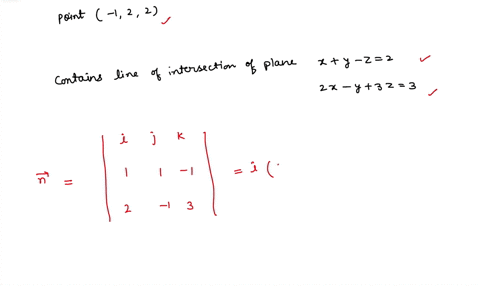 point (-1, 2, 2) ✓
Contains line of intersection of plane x + y - z = 2 ✓
2x - y + 3z = 3 ✓
i j k
n⃗ = 1 1 -1 = i (
2 -1 3